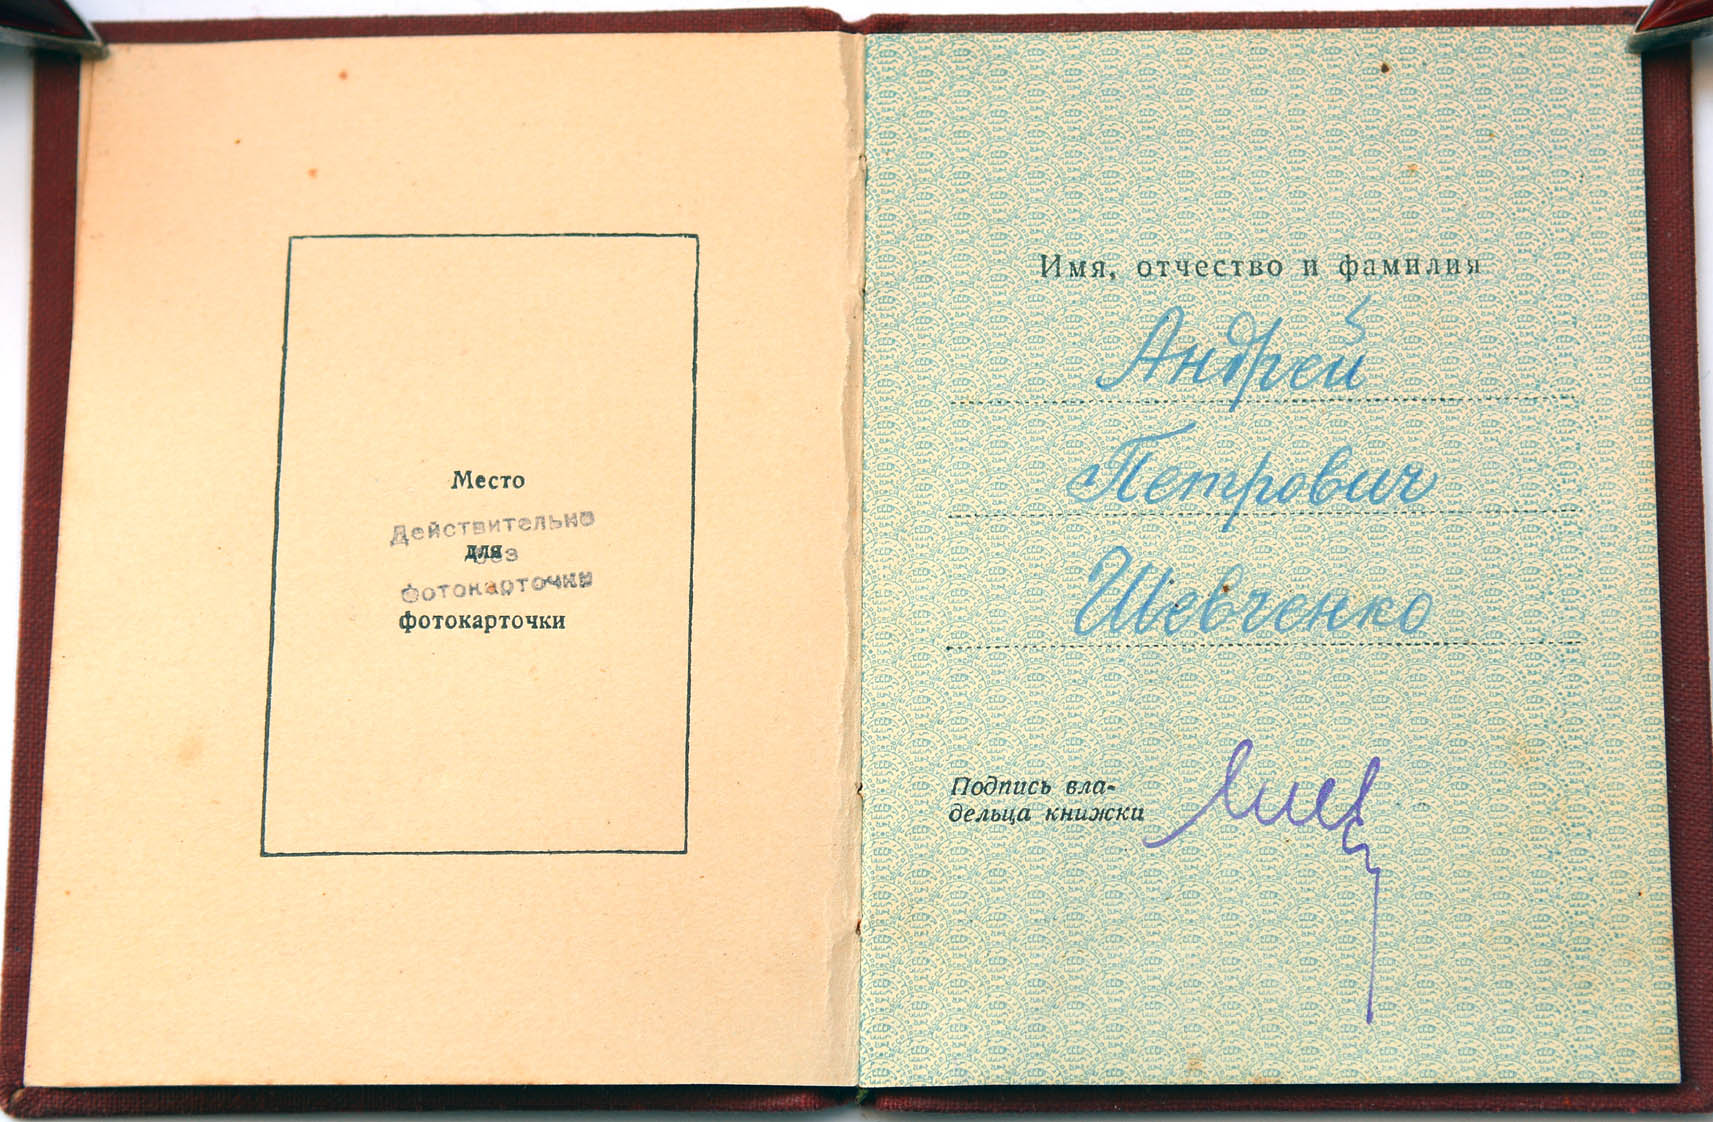 Место
Действительно
для
без
фотокарточки
фотокарточки
Имя, отчество и фамилия
Андрей
Петрович
Шевченко
Подпись вла-
дельца книжки